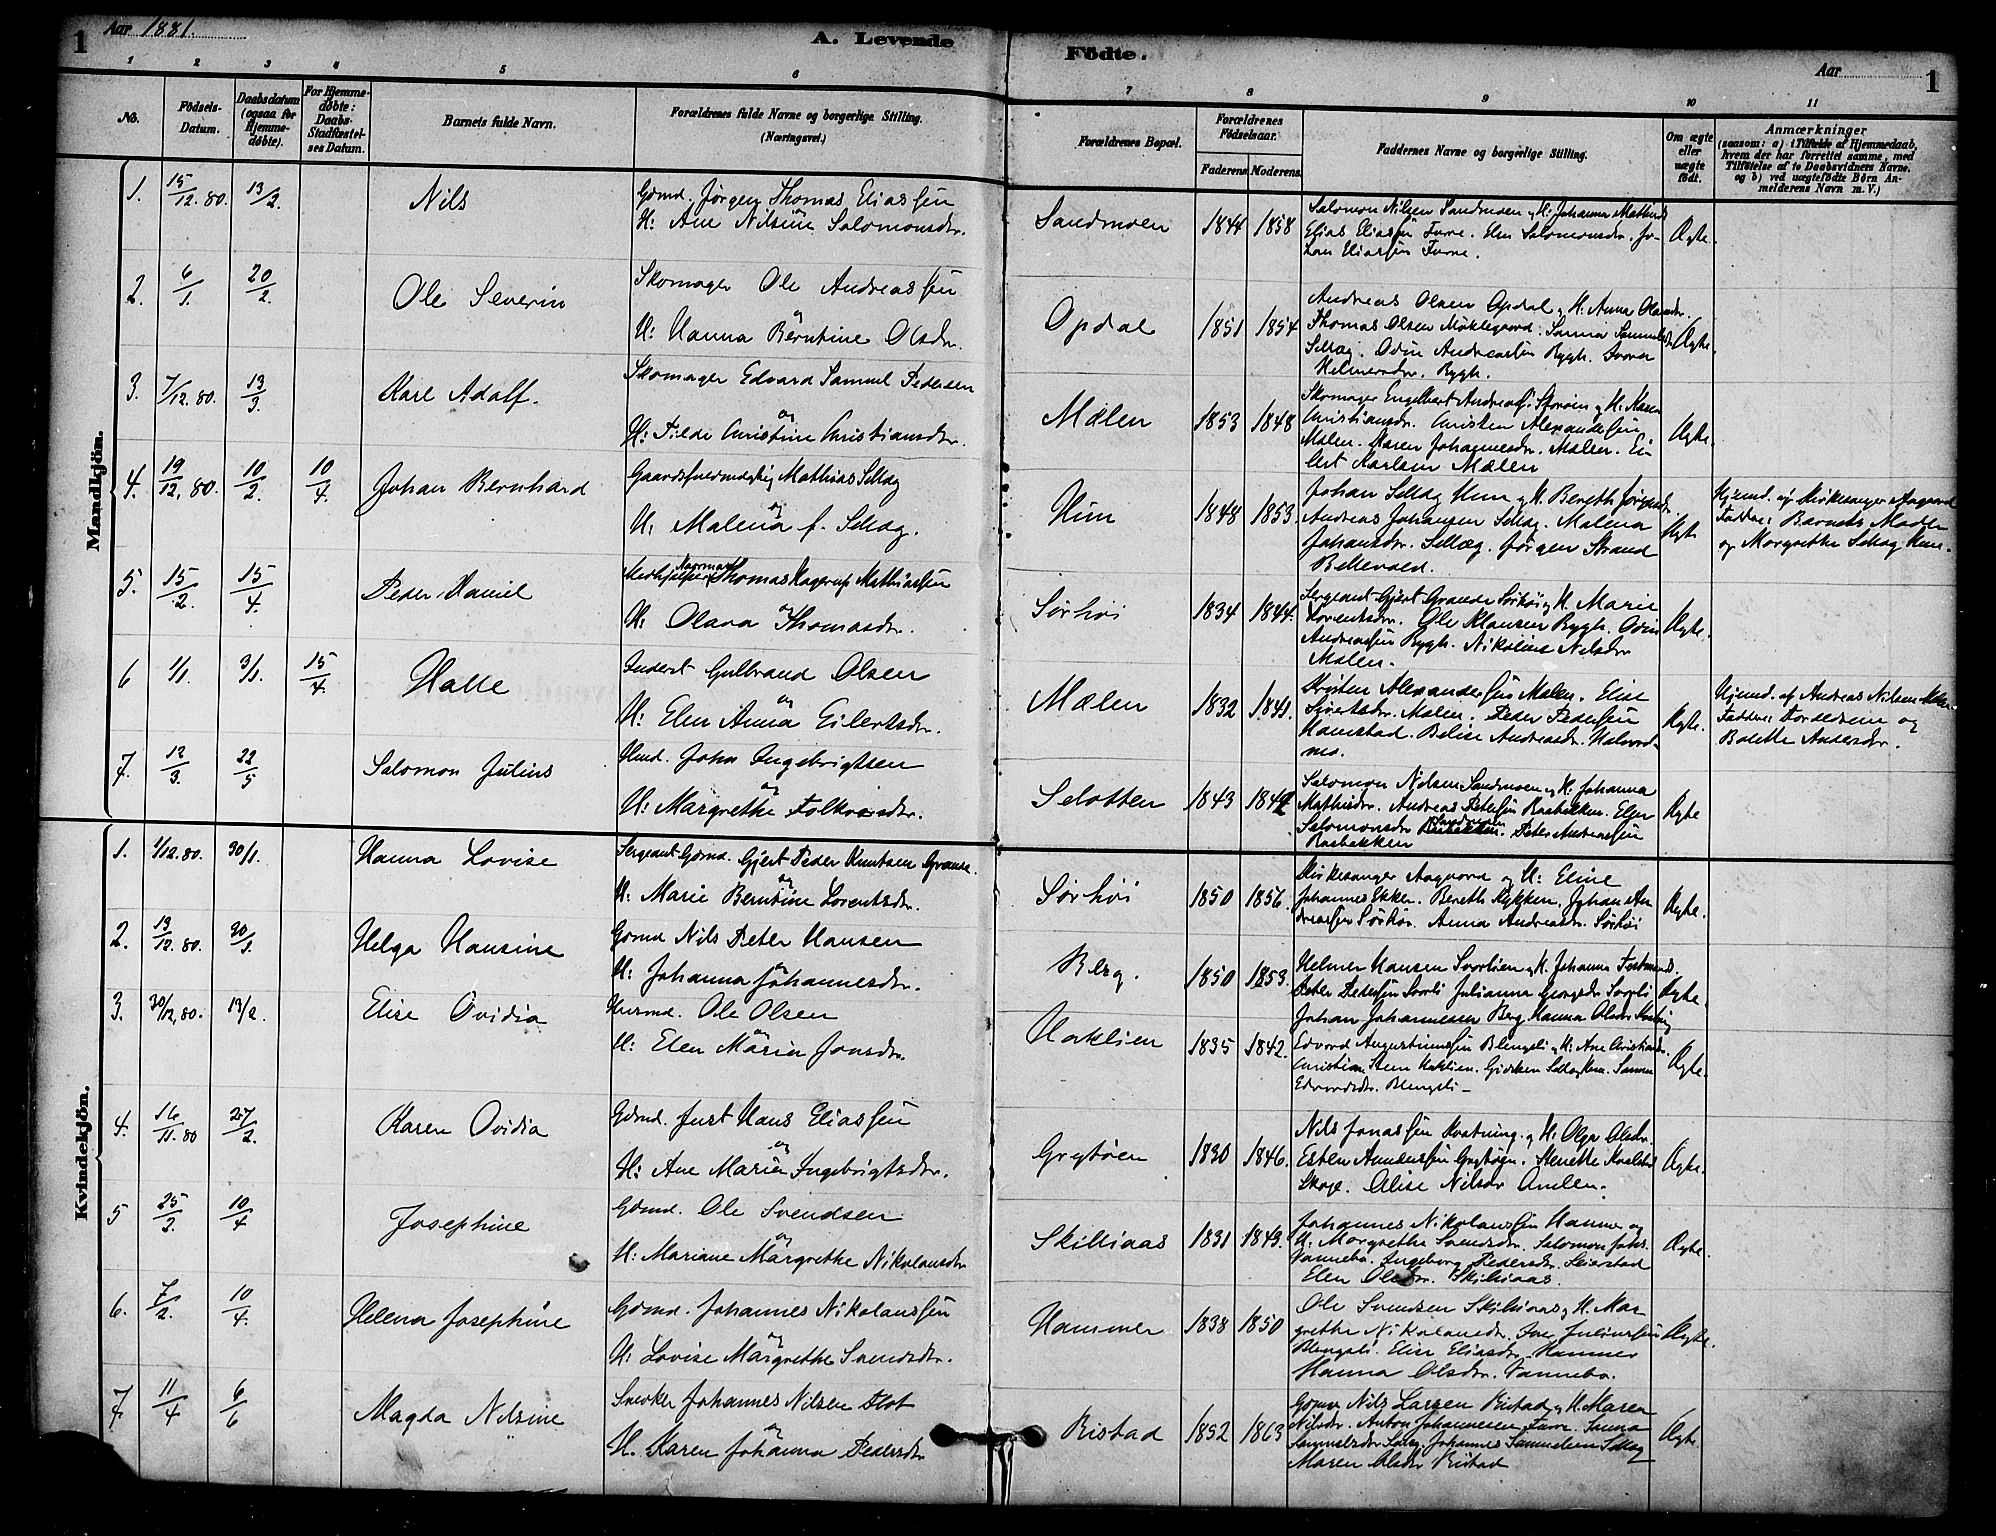 1 Aar 1881. A. Levende Födte. Aar 1
1 2 3 4 5 6 7 8 9 10 11
No.
Födsels-Datum.
Daabsdatum (ogsaa for Hjemme-döbte).
For Hjemme-döbte: Daabs-Stadfæstel-ses Datum.
Barnets fulde Navn.
Forældrenes fulde Navne og borgerlige Stilling.
(Næringsvei.)
Forældrenes Bopæl.
Forældrenes Födselsaar.
Faderens. Moderens.
Faddernes Navne og borgerlige Stilling.
Om ægte eller uægte födt.
Anmærkninger
(saasom: a) i Tilfælde af Hjemmedaab,
hvem der har forrettet samme, med
Tilføielse af to Daabsvidners Navne.
og b) ved uægtefödte Börn An-
melderens Navn m. V.)
Mandkjön.
1. 15/12. 80. 13/2. Nils
Gdmd. Jørgen Thomas Eliassen
H: Ane Nilsine Salomonsdr.
Sandmoen 1844 1858
Salomon Nilsen Sandmoen og H: Johanna
Elias Eliassen Furre. Elen Salomonsdr. Jo-
han Eliassen Furre.
Ægte.
2. 6/1. 20/2. Ole Severin
Skomager Ole Andreassen
og
H: Hanna Berntine Olsdr.
Opdal 1851 1854
Andreas Olsen Opdal og H: Anna Olausdr.
Thomas Olsen Møklegaard. Sanna
Selløg. Odin Andreassen Bygh.
Helmersdr. Bygh.
Ægte.
3. 7/12. 80. 13/3. Karl Adolf.
Skomager Edvard Samuel Pedersen
og
H: Tilde Christine Christiansdr.
Mælen 1853 1848
Skomager Engelbert Storøien og H: Karen
Christiansdr. Christen Alexandersen
Mælen. Karen Johannesdr. Mælen. Ei-
lert Karlsen Mælen
Ægte.
4. 19/12. 80. 10/2. 10/4. Johan Bernhard
Mathias Selløg
og
H: Malena f. Selløg.
Hun 1848 1853.
Johan Selløg Hun og H. Bereth
Andreas Johansen Selløg. Malena
Johansdr. Selløg. Jørgen Strand
Ægte
Hjemd. af Kirkesanger Aagaard
Faddere: Barnets Moder
og Margrethe Selløg Hun.
5. 15/2. 15/4. Peder Daniel
Thomas Hagerup Mathiassen
og
H: Olava Thomasdr.
Sørhøi 1834 1844.
Sergeant Gjert Grande Sørhøi og H. Marie
Lorentsdr. Ole Klausen Bygh. Odin
Andreassen Bygh. Nikoline Nilsdr
Mælen.
Ægte.
6 1/1. 3/1. 15/4. Halle
Inderst Gulbrand Olsen
og
H: Elen Anna Eilertsdr.
Mælen 1832 1841.
Kristen Alexandersen Mælen. Elise
Sivertsdr. Mælen. Peder Pedersen
Hamstad. Belise Andreasdr.
mo.
Ægte.
Hjemd. af Andreas Nilsen Mælen.
Faddere: Forældrene og
Bolette Andersdr.
7. 12/3. 22/5 Salomon Julius
Hmd. Johan Ingebrigtsen
og
H: Margrethe Folkvosdr.
Slotten 1843 1842
Salomon Nilsen Sandmoen og H. Johanna
Mathisdr. Andreas Petersen Rosbakken. Elen
Salomonsdr Sandmoen. Peter Andreassen
Rosbakken
Ægte
Kvindekjön.
1. 1/12. 80. 30/1. Hanna Lovise
Sergeant Gdmd. Gjert Peder Knutsen Grande.
og
H: Marie Berntine Lorentsdr.
Sørhøi 1850 1856.
Kirkesanger Aagaard og H: Eline
Johannes Ekker. Bereth Rykken. Johan An-
dreassen Sørhøi. Anna Andreasdr. Sørhøi
Ægte.
2. 13/12. 80. 30/1. Helga Hansine
Gdmd Nils Peter Hansen
og
H: Johanna Johannesdr.
Berg. 1850 1853.
Helmer Hansen og H. Johanna
Peter Pedersen Julianna
Johan Johannessen Berg. Hanna Olsdr
Ægte.
3. 30/12. 80. 13/2. Elise Ovidia
Husmd. Ole Olsen
og
H: Elen Maria Jonsdr.
Haklien 1835 1842.
Edvard Augustinussen Blengsli og H: Ane Christiansdr.
Christian Haklien. Sanna
Edvardsdr. Blengsli
Ægte.
4. 16/11. 80 27/2. Karen Ovidia
Gdmd. Just Hans Eliassen
og
H: Ane Maria Ingebrigtsdr.
Grytøen 1830 1846.
Nils Jonassen Kvatning. og H: Olga Olsdr.
Esten Grytøen.
Skage. Olise Nilsdr Amlen.
Ægte.
5 25/2. 10/4 Josephine
Gdmd. Ole Svendsen
og
H: Mariane Margrethe Nikolausdr
Skilliaas 1831 1843.
Johannes Nikolaussen Hammer og
H. Margrethe Svendsdr. Salomon Johs.
Vannebo. Ingeborg Pedersdr. Leirstad
Elen Olsdr. Skiliaas.
Ægte.
6. 7/2. 10/4. Helena Josephine
Gdmd. Johannes Nikolaussen
og
H: Lovise Margrethe Svendsdr.
Hammer 1838 1850
Ole Svendsen Skiliaas og H. Mar-
grethe Nikolausdr. Juliussen
Blengsli. Elise Eliasdr. Hammer
Hanna Olsdr. Vannebo.
Ægte.
7. 11/4 6/6 Magda Nilsine
Snekker Johannes Nilsen Slot
og
H. Karen Johanna Pedersdr
Ristad 1852 1863
Gdmd Nils Larsen Ristad og H. Maren
Nilsdr. Anton Johannesen Furre. Sanna
Samuelsdr Selløg. Johannes Samuelsen Selløg
Maren Olsdr Ristad
Ægte.